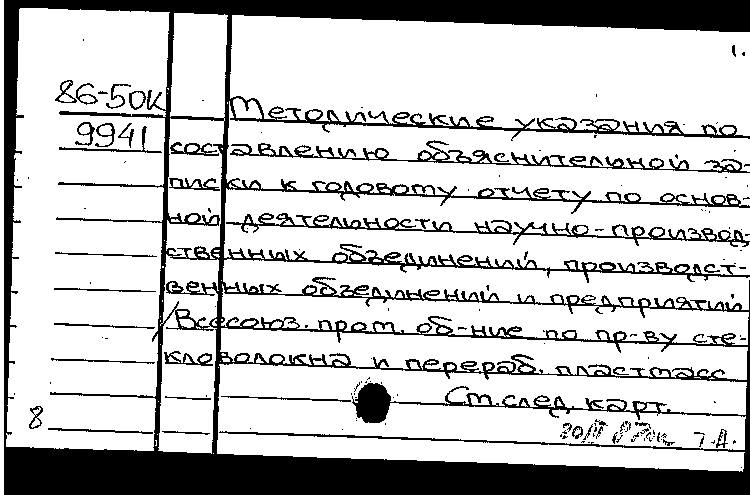 1.
86-50к Методические указания по
9941 составлению объяснительной за-
писки к годовому отчету по основ-
ной деятельности научно-производ-
ственных объединений, производст-
венных объединений и предприятий
/Всесоюз. пром. об-ние по пр-ву сте-
кловолокна и перераб. пластмасс
См. след. карт.
8